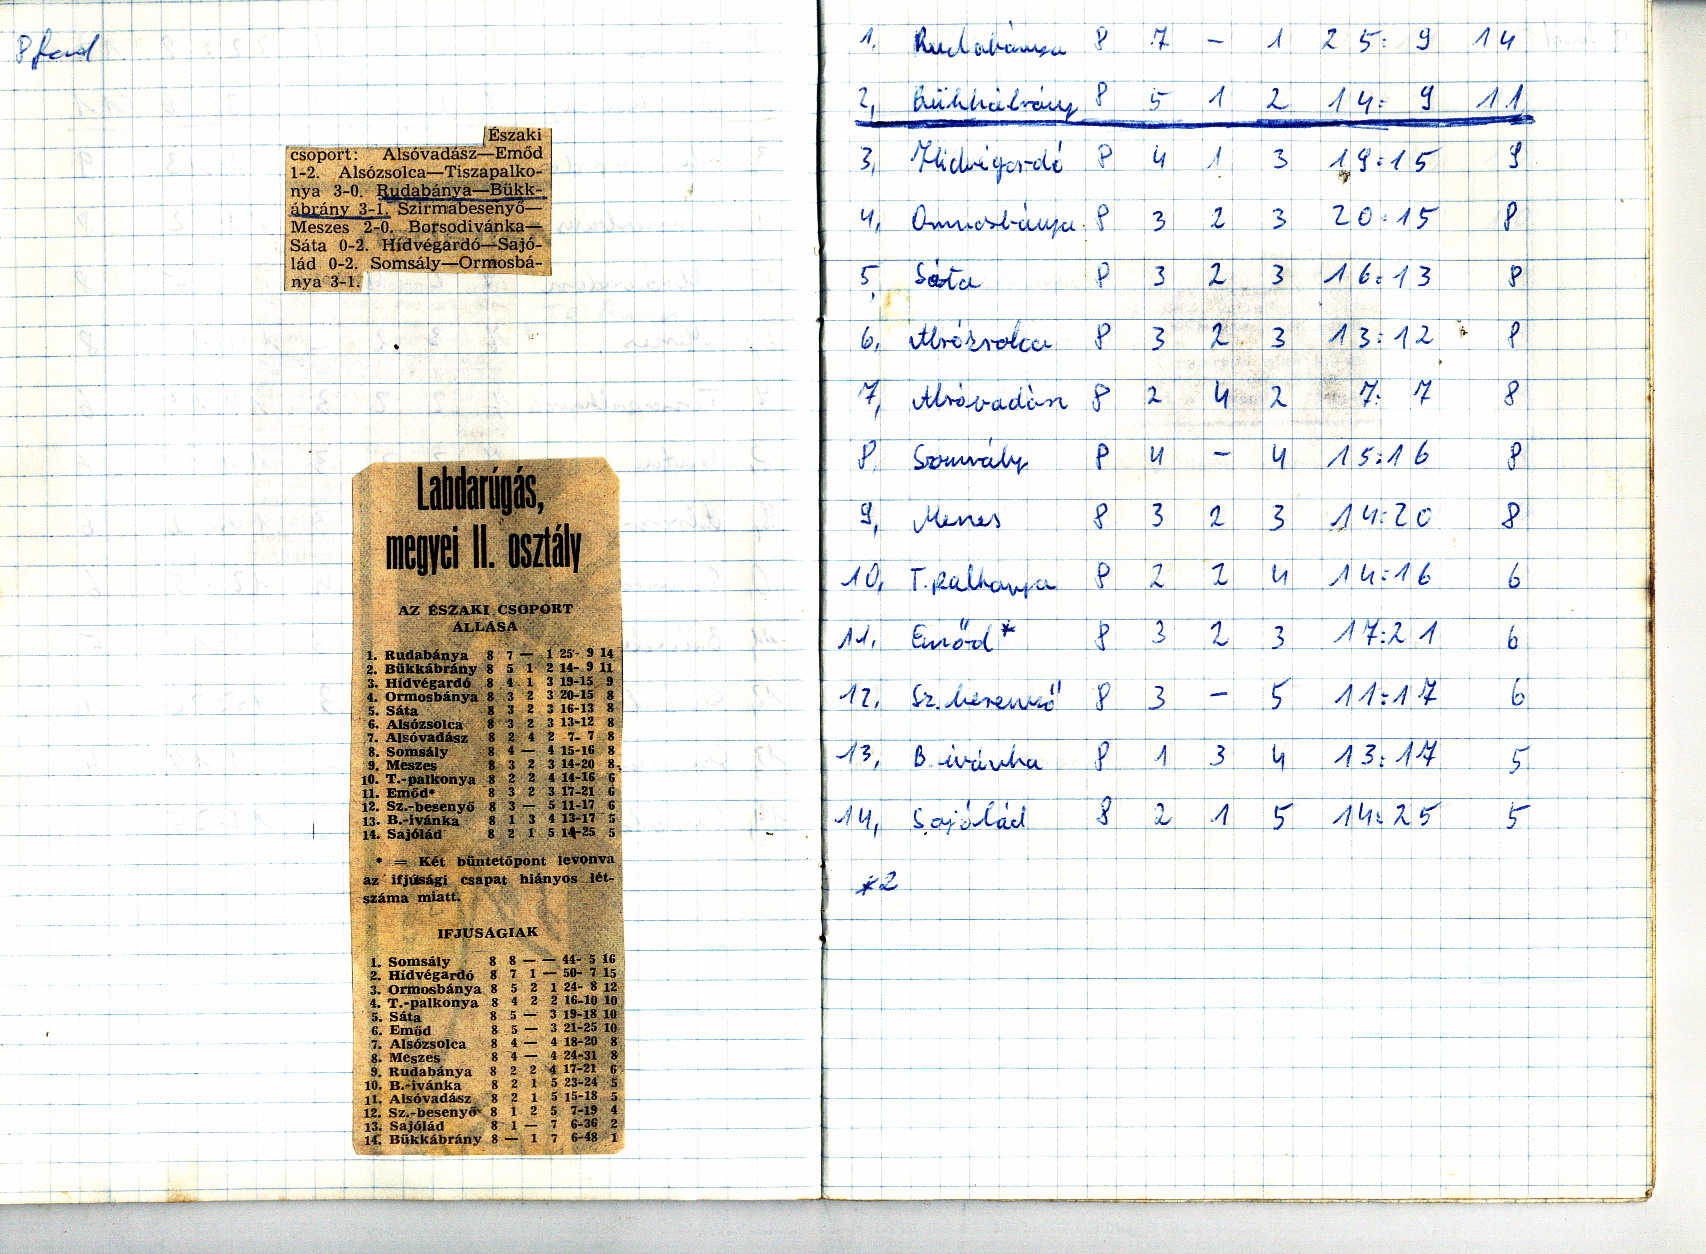 8 ford
Északi
csoport: Alsóvadász—Emőd
1-2. Alsózsolca—Tiszapalko-
nya 3-0. Rudabánya—Bükk-
ábrány 3-1. Szirmabesenyő—
Meszes 2-0. Borsodivánka—
Sáta 0-2. Hídvégardó—Sajó-
lád 0-2. Somsály—Ormosbá-
nya 3-1.
Labdarúgás,
megyei II. osztály
AZ ÉSZAKI CSOPORT
ÁLLÁSA
1. Rudabánya 8 7 — 1 25- 9 14
2. Bükkábrány 8 5 1 2 14- 9 11
3. Hídvégardó 8 4 1 3 19-15 9
4. Ormosbánya 8 3 2 3 20-15 8
5. Sáta 8 3 2 3 16-13 8
6. Alsózsolca 8 3 2 3 13-12 8
7. Alsóvadász 8 2 4 2 7- 7 8
8. Somsály 8 4 — 4 15-16 8
9. Meszes 8 3 2 3 14-20 8
10. T.-palkonya 8 2 2 4 14-16 6
11. Emőd* 8 3 2 3 17-21 6
12. Sz.-besenyő 8 3 — 5 11-17 6
13. B.-ivánka 8 1 3 4 13-17 5
14. Sajólád 8 2 1 5 14-25 5
* = Két büntetőpont levonva
az ifjúsági csapat hiányos lét-
száma miatt.
IFJUSÁGIAK
1. Somsály 8 8 — — 44- 5 16
2. Hídvégardó 8 7 1 — 50- 7 15
3. Ormosbánya 8 5 2 1 24- 8 12
4. T.-palkonya 8 4 2 2 16-10 10
5. Sáta 8 5 — 3 19-18 10
6. Emőd 8 5 — 3 21-25 10
7. Alsózsolca 8 4 — 4 18-20 8
8. Meszes 8 4 — 4 24-31 8
9. Rudabánya 8 2 2 4 17-21 6
10. B.-ivánka 8 2 1 5 23-24 5
11. Alsóvadász 8 2 1 5 15-18 5
12. Sz.-besenyő 8 1 2 5 7-19 4
13. Sajólád 8 1 — 7 6-36 2
14. Bükkábrány 8 — 1 7 6-48 1
1, Rudabánya 8 7 - 1 25: 9 14
2, Bükkábrány 8 5 1 2 14: 9 11
3, Hidvégardó 8 4 1 3 19:15 9
4, Ormosbánya 8 3 2 3 20:15 8
5, Sáta 8 3 2 3 16:13 8
6, Alsózsolca 8 3 2 3 13:12 8
7, Alsóvadász 8 2 4 2 7: 7 8
8, Somsály 8 4 - 4 15:16 8
9, Meszes 8 3 2 3 14:20 8
10, T.palkonya 8 2 2 4 14:16 6
11. Emőd* 8 3 2 3 17:21 6
12, Sz.besenyő 8 3 - 5 11:17 6
13, B.ivánka 8 1 3 4 13:17 5
14, Sajólád 8 2 1 5 14:25 5
*2